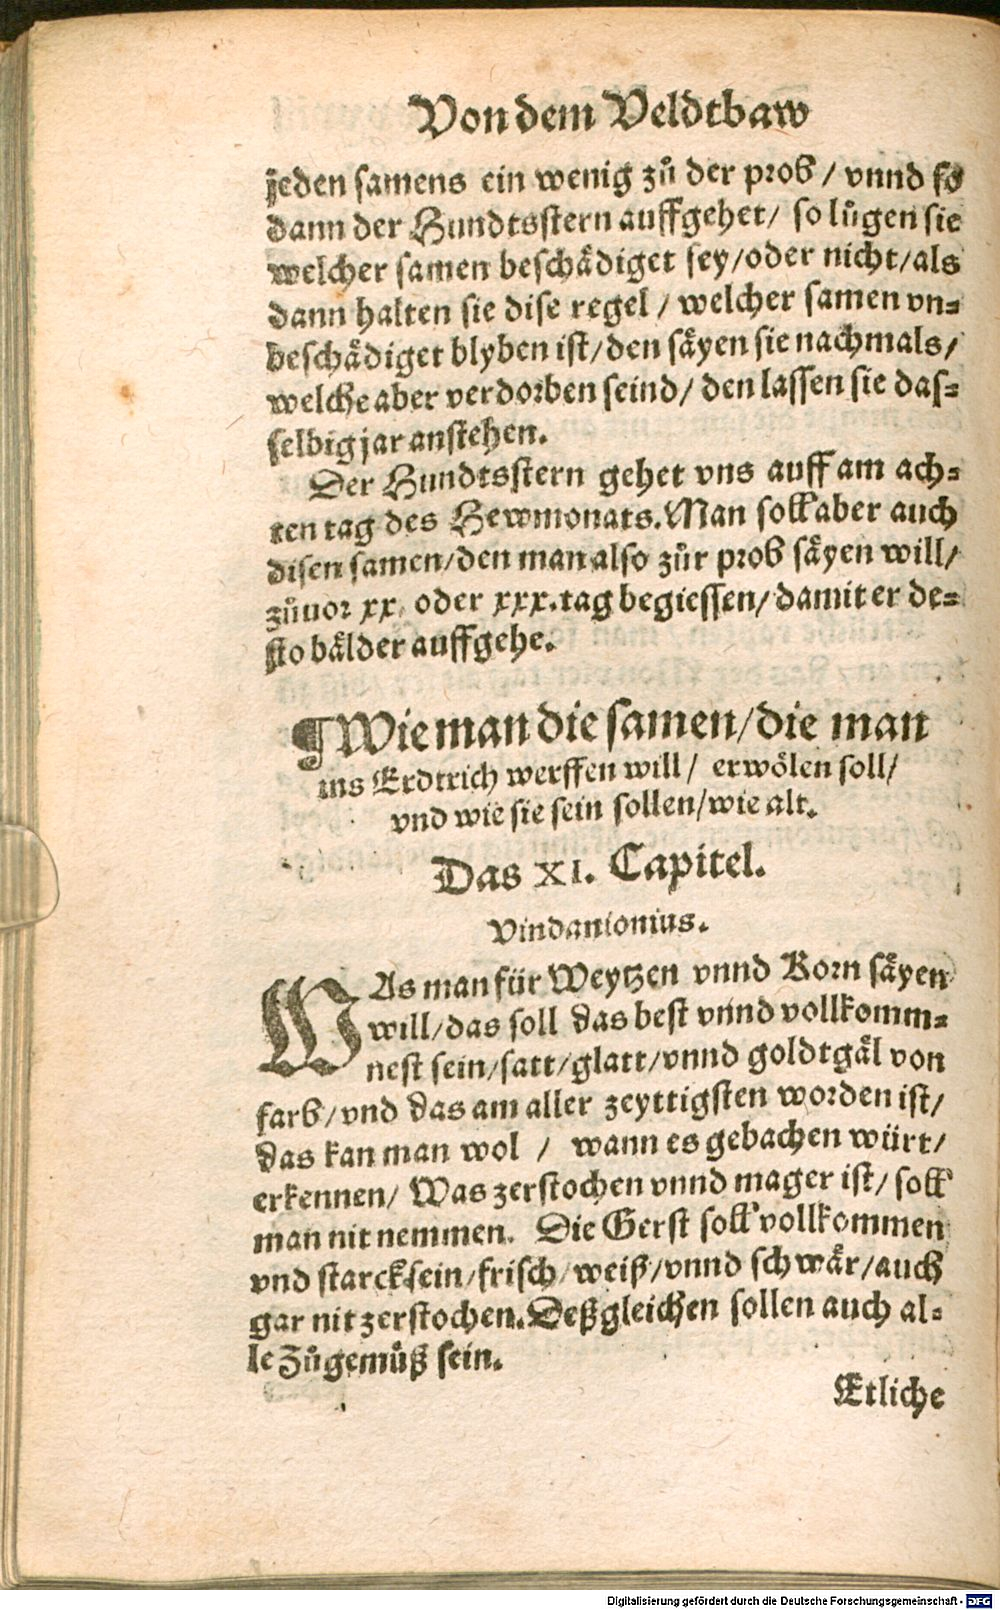 Von dem Veldtbaw
jeden samens ein wenig zů der prob / vnnd so
dann der Hundtsstern auffgehet / so lůgen sie
welcher samen beschädiget sey / oder nicht / als
dann halten sie dise regel / welcher samen vn=
beschädiget blyben ist / den säyen sie nachmals /
welche aber verdorben seind / den lassen sie das=
selbig jar anstehen.
Der Hundtsstern gehet vns auff am ach=
ten tag des Hewmonats. Man soll aber auch
disen samen / den man also zůr prob säyen will /
zůuor xx. oder xxx. tag begiessen / damit er de=
sto bälder auffgehe.
¶ Wie man die samen / die man
ins Erdtrich werffen will / erwölen soll /
vnd wie sie sein sollen / wie alt.
Das XI. Capitel.
Vindanionius.
WAs man für Weytzen vnnd Korn säyen
will / das soll das best vnnd vollkomm=
nest sein / satt / glatt / vnnd goldtgäl von
farb / vnd das am aller zeyttigsten worden ist /
das kan man wol / wann es gebachen würt /
erkennen / Was zerstochen vnnd mager ist / soll
man nit nemmen. Die Gerst soll vollkommen
vnd starck sein / frisch / weiß / vnnd schwär / auch
gar nit zerstochen. Deßgleichen sollen auch al=
le Zůgemůß sein.
Etliche
Digitalisierung gefördert durch die Deutsche Forschungsgemeinschaft - DFG